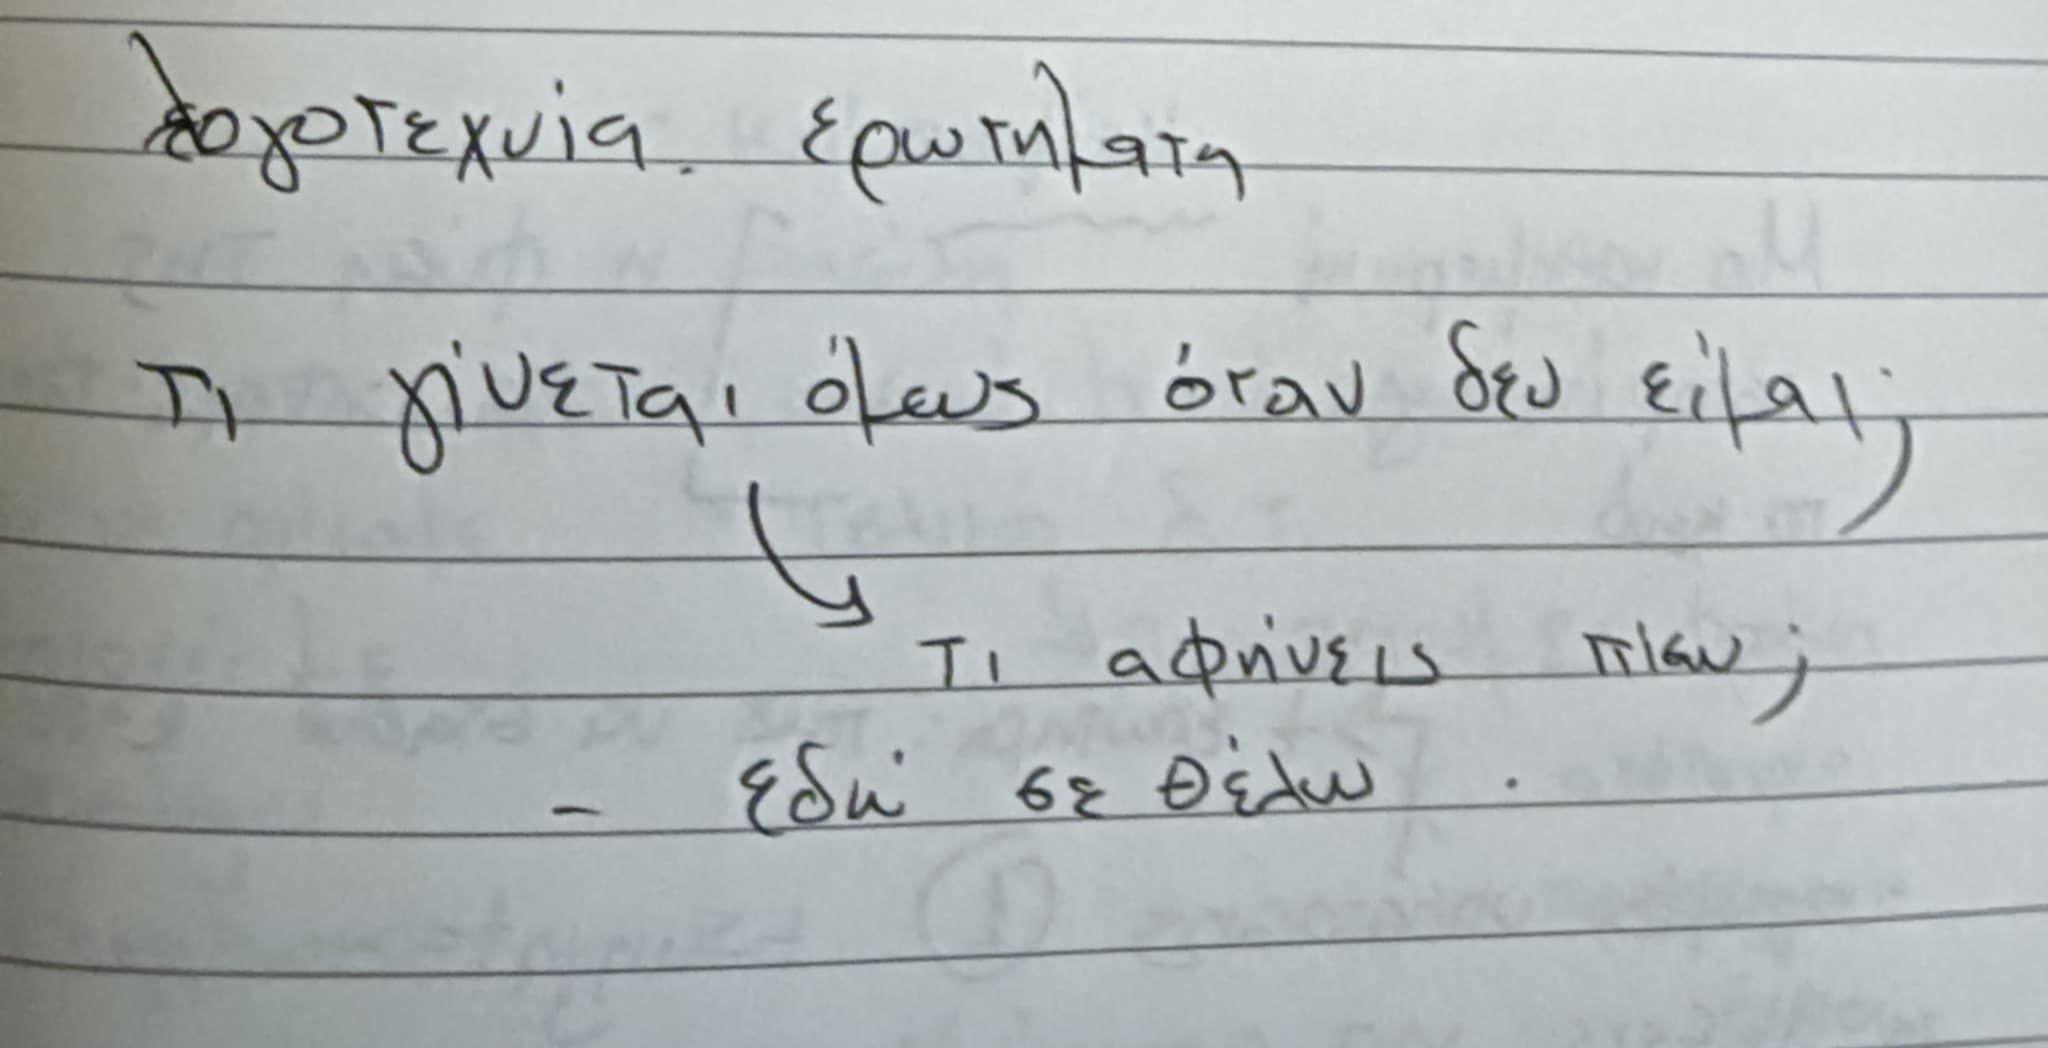 λογοτεχνία. ερωτηματα
τι γίνεται όμως όταν δεν είμαι;
τι αφήνεις πίσω;
- εδώ σε θέλω .